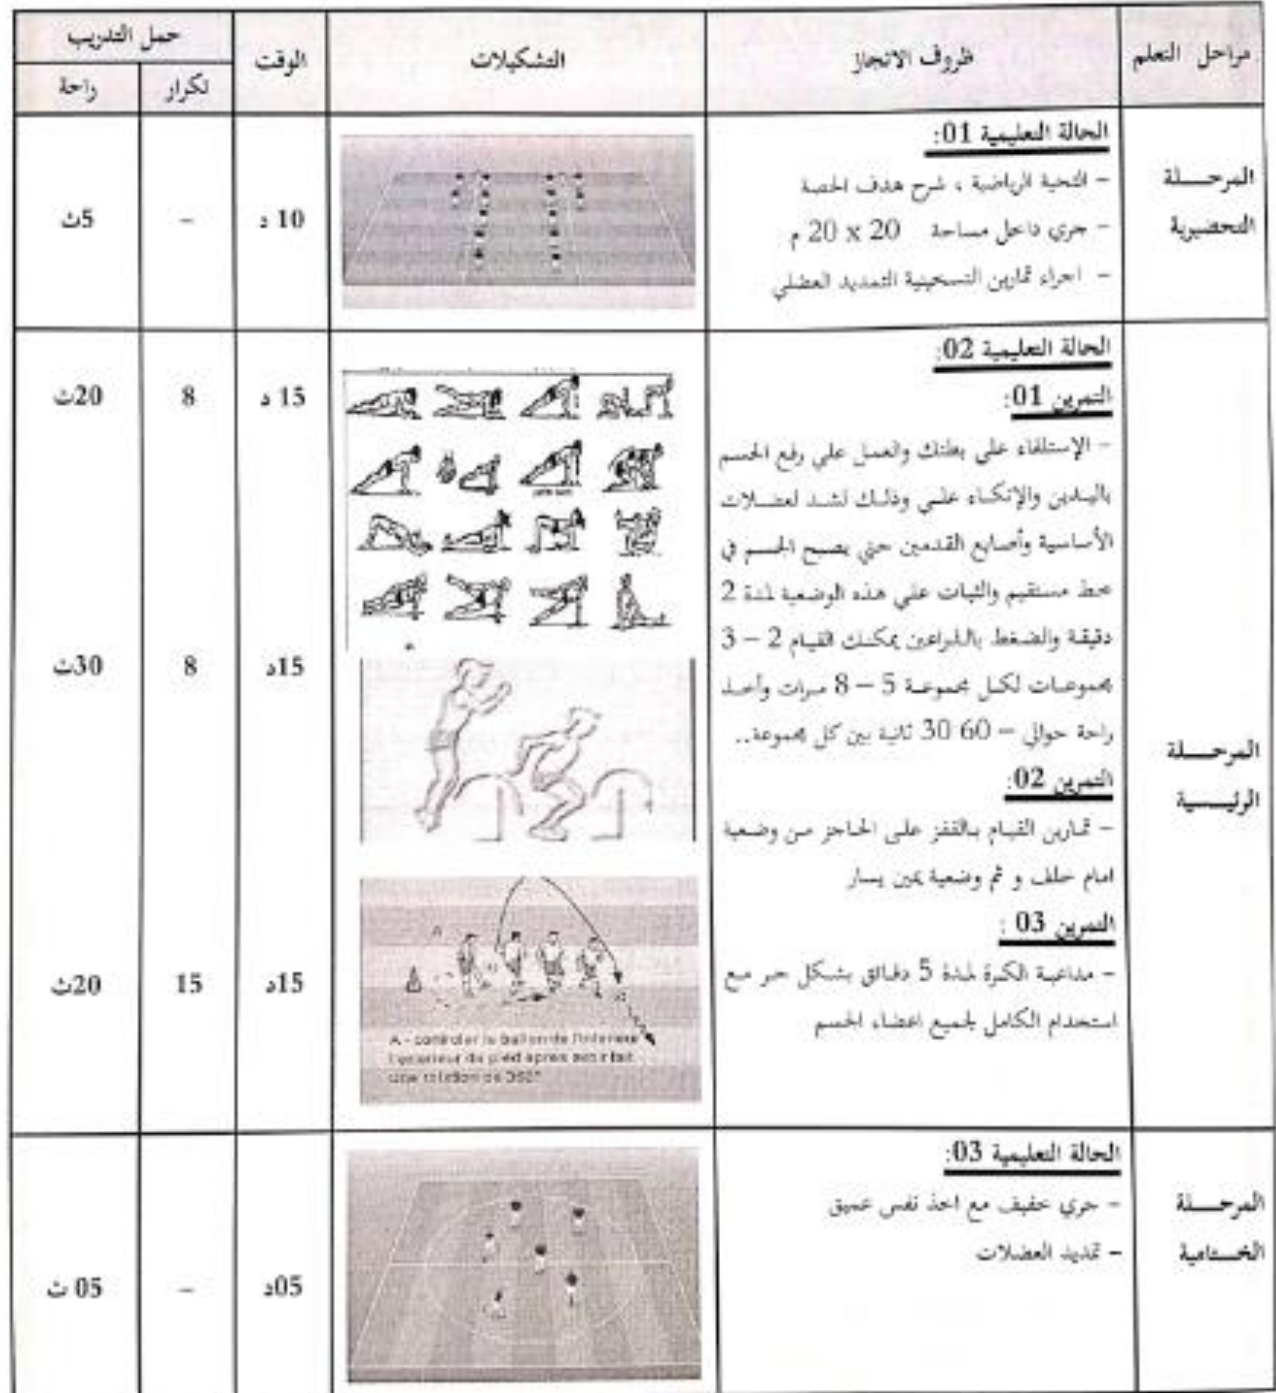 مراحل التعلم
ظروف الانجاز
التشكيلات
الوقت
حمل التدريب
تكرار
راحة
المرحـــلة
التحضيرية
الحالة التعليمية 01:
– التحية الرياضية ، شرح هدف الحصة
– جري داخل مساحة 20 x 20 م
– اجراء تمارين التسخينية التمديد العضلي
10 د
–
5ث
المرحـــلة
الرئيـــسية
الحالة التعليمية 02:
التمرين 01:
– الإستلقاء على بطنك والعمل علي رفع الجسم
باليـدين والإتكـاء علـي وذلـك لشـد لعضـلات
الأساسية وأصابع القدمين حتي يصبح الجسـم في
خط مستقيم والثبات علي هذه الوضعية لمدة 2
دقيقة والضغط بالذراعين يمكنك القيـام 2 – 3
مجموعـات لكـل مجموعـة 5 – 8 مـرات وأخـذ
راحة حوالي – 60 30 ثانية بين كل مجموعة..
التمرين 02:
– تمـارين القيـام بـالقفز علـى الحـاجز مـن وضـعية
امام خلف و ثم وضعية يمين يسار
التمرين 03 :
– مداعبـة الكـرة لمـدة 5 دقـائق بشـكل حـر مـع
استخدام الكامل لجميع اعضاء الجسم
15 د
8
20ث
15د
8
30ث
15د
15
20ث
A - controler le ballon de l'interieur
l'exterieur du pied apres avoir fait
une rotation de 360°
المرحـــلة
الخـــتامية
الحالة التعليمية 03:
– جري خفيف مع اخذ نفس عميق
– تمديد العضلات
05د
–
05 ث